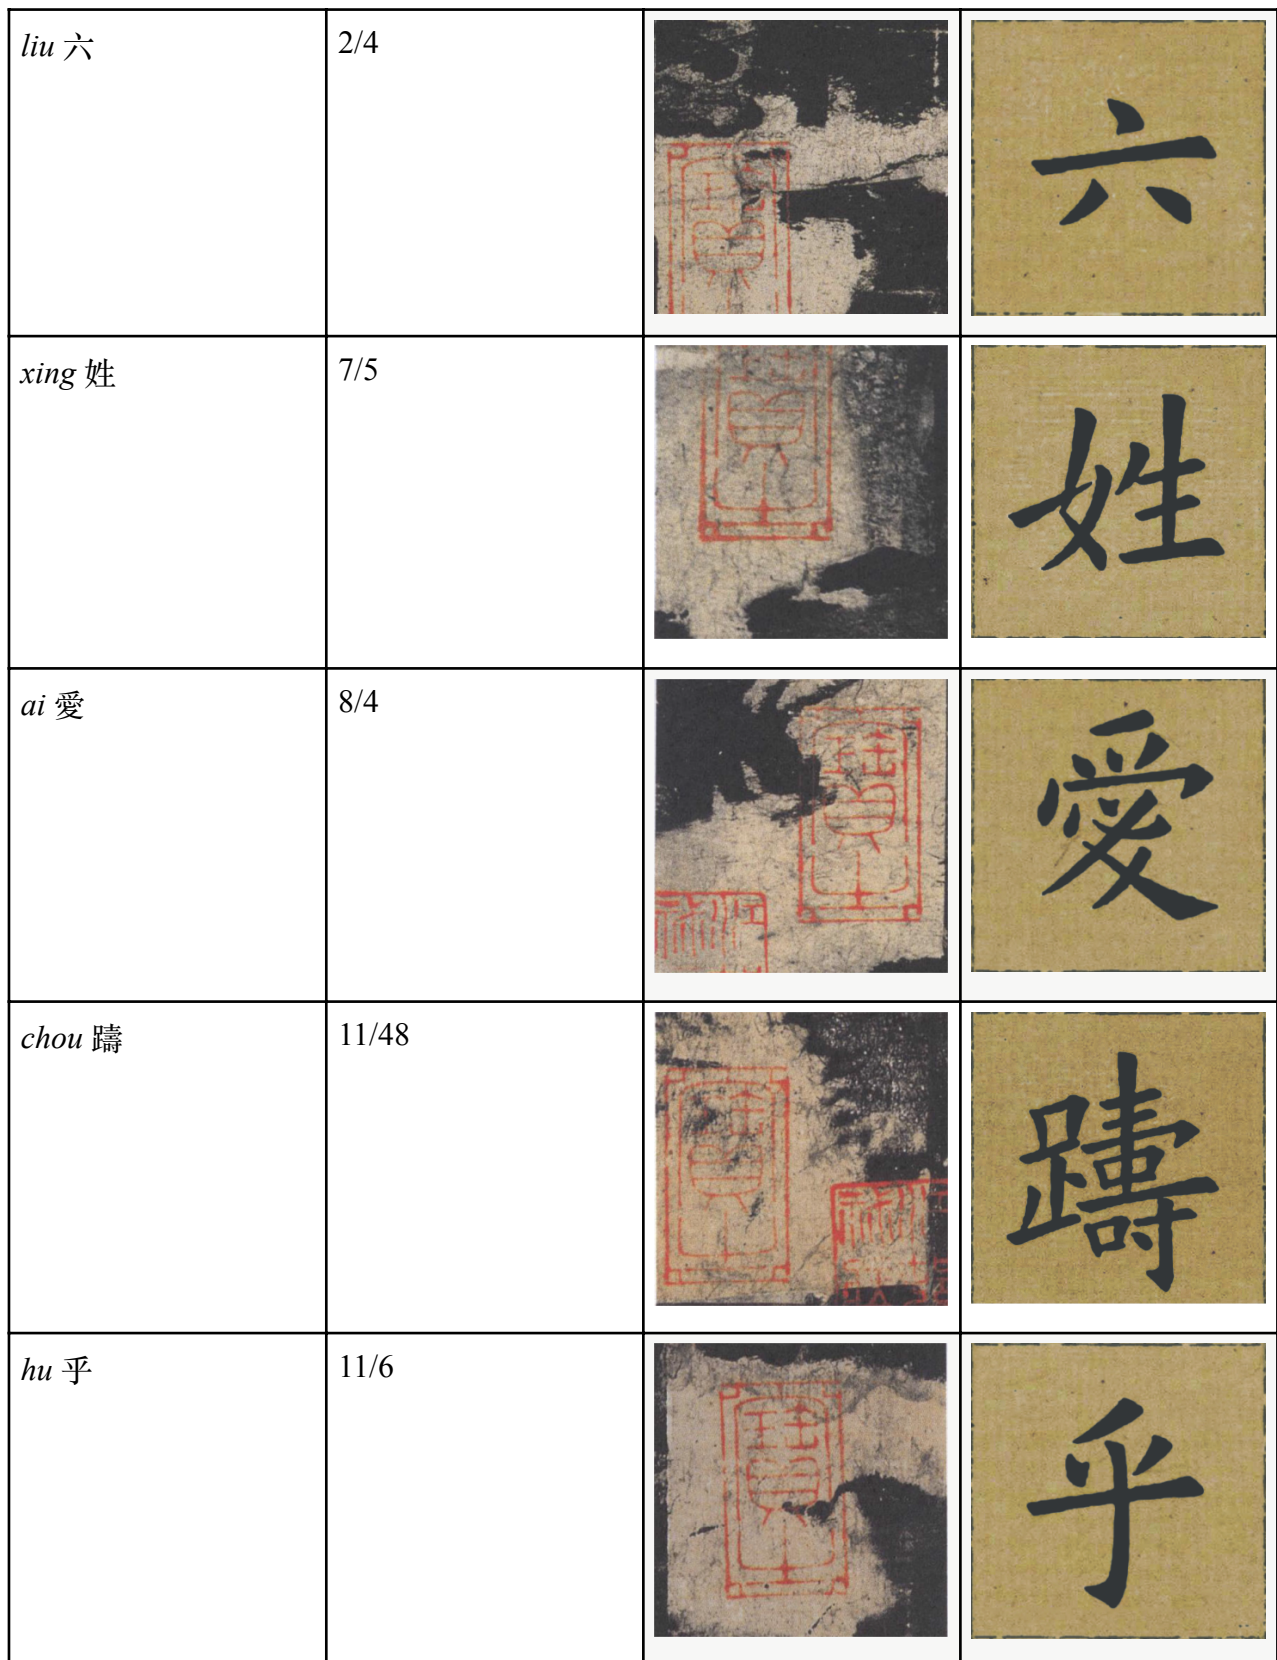 liu 六 2/4 六
xing 姓 7/5 姓
ai 愛 8/4 愛
chou 躊 11/48 躊
hu 乎 11/6 乎